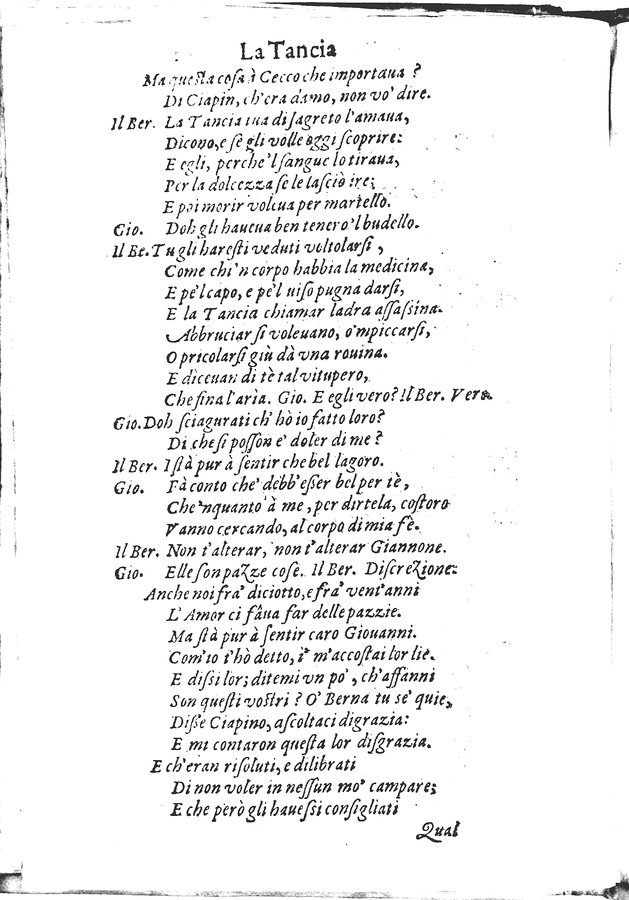 La Tancia
Ma questa cosa à Cecco che importaua ?
Di Ciapin, ch'era damo, non vo' dire.
Il Ber. La Tancia tua di sagreto l'amaua,
Dicono, e se gli volle oggi scoprire:
E egli, perche 'l sangue lo tiraua,
Per la dolcezza se le lasciò ire;
E poi morir voleua per martello.
Gio. Doh gli haueua ben tenero 'l budello.
Il Be. Tu gli haresti veduti voltolarsi ,
Come chi 'n corpo habbia la medicina,
E pe'l capo, e pe'l uiso pugna darsi,
E la Tancia chiamar ladra assassina.
Abbruciar si voleuano, o'mpiccarsi,
O pricolarsi giù dà vna rouina.
E diceuan di tè tal vitupero,
Che fina l'aria. Gio. E egli vero? Il Ber. Vero.
Gio. Doh sciagurati ch' hò io fatto loro?
Di che si posson e' doler di me ?
Il Ber. Istà pur à sentir che bel lagoro.
Gio. Fà conto che' debb'esser bel per tè,
Che 'nquanto à me , per dirtela, costoro
Vanno cercando, al corpo di mia fè.
Il Ber. Non t'alterar, non t'alterar Giannone.
Gio. Elle son pazze cose. Il Ber. Discrezione:
Anche noi fra' diciotto, e fra' vent'anni
L' Amor ci fâua far delle pazzie.
Ma stà pur à sentir caro Giouanni.
Com'io t'hò detto, i' m'accostai lor lie.
E dissi lor; ditemi vn po' , ch'affanni
Son questi vostri ? O' Berna tu se' quie,
Disse Ciapino, ascoltaci digrazia:
E mi contaron questa lor disgrazia.
E ch'eran risoluti, e dilibrati
Di non voler in nessun mo' campare;
E che però gli hauessi consigliati
Qual